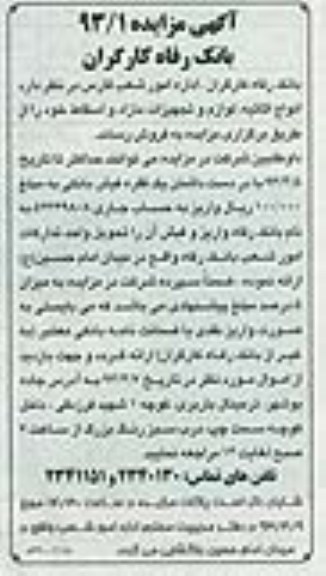 آگهی مزایده ۹۳/۱
بانک رفاه کارگران
بانک رفاه کارگران، اداره امور شعب فارس در نظر دارد
انواع اثاثیه، لوازم و تجهیزات مازاد و اسقاط خود را از
طریق برگزاری مزایده به فروش رساند.
داوطلبین شرکت در مزایده می توانند حداکثر تا تاریخ
با در دست داشتن یک فقره فیش بانکی به مبلغ
۱۰۰/۰۰۰ ریال واریز به حساب جاری به
نام بانک رفاه واریز و فیش آن را تحویل واحد تدارکات
امور شعب بانک رفاه واقع در میدان امام حسین(ع)
ارائه نموده، ضمناً سپرده شرکت در مزایده به میزان
۵ درصد مبلغ پیشنهادی می باشد که می بایستی به
صورت واریز نقدی یا ضمانت نامه بانکی معتبر (به
غیر از بانک رفاه کارگران) ارائه گردد و جهت بازدید
از اموال مورد نظر در تاریخ به آدرس جاده
بوشهر، ترمینال باربری، کوچه ۱ شهید داخل
کوچه سمت چپ درب سبز رنگ بزرگ از ساعت
صبح لغایت ۱۲ مراجعه نمایند.
تلفن های تماس: ۲۳۴۰۱۳۰ و ۲۳۴۱۱۵۱
شایان ذکر است مزایده در ساعت صبح
در دفتر مدیریت امور شعب واقع در
میدان امام حسین می گردد.